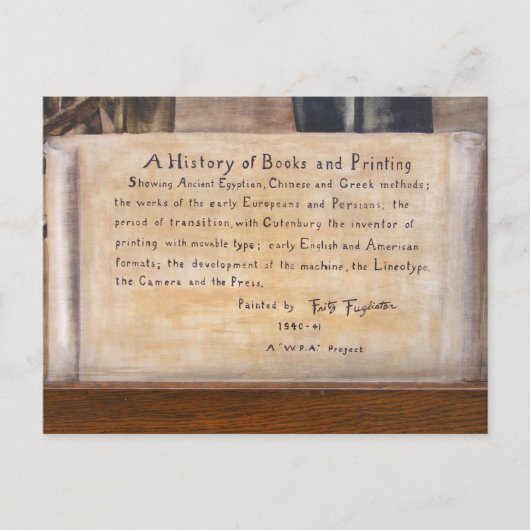 A History of Books and Printing
Showing Ancient Egyptian, Chinese and Greek methods;
the works of the early Europeans and Persians; the
period of transition, with Gutenburg the inventor of
printing with movable type; early English and American
formats; the development of the machine, the Lineotype,
the Camera and the Press.
Painted by Fritz Fuglister
1940-41
A "W.P.A." Project